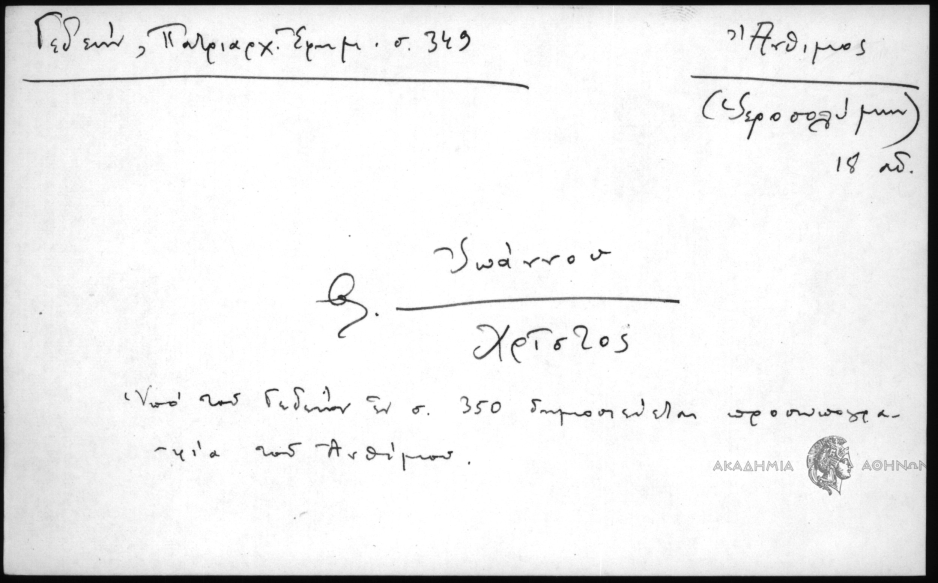 Γεδεών, Πατριαρχ. Ἐφημ. σ. 349
Ἄνθιμος
(Ἱεροσολύμων)
18 αἰ.
Ἰωάννου
Χρῖστος
Ὑπό τοῦ Γεδεών ἐν σ. 350 δημοσιεύεται προσωπογρα-
φία τοῦ Ἀνθίμου.
ΑΚΑΔΗΜΙΑ ΑΘΗΝΩΝ